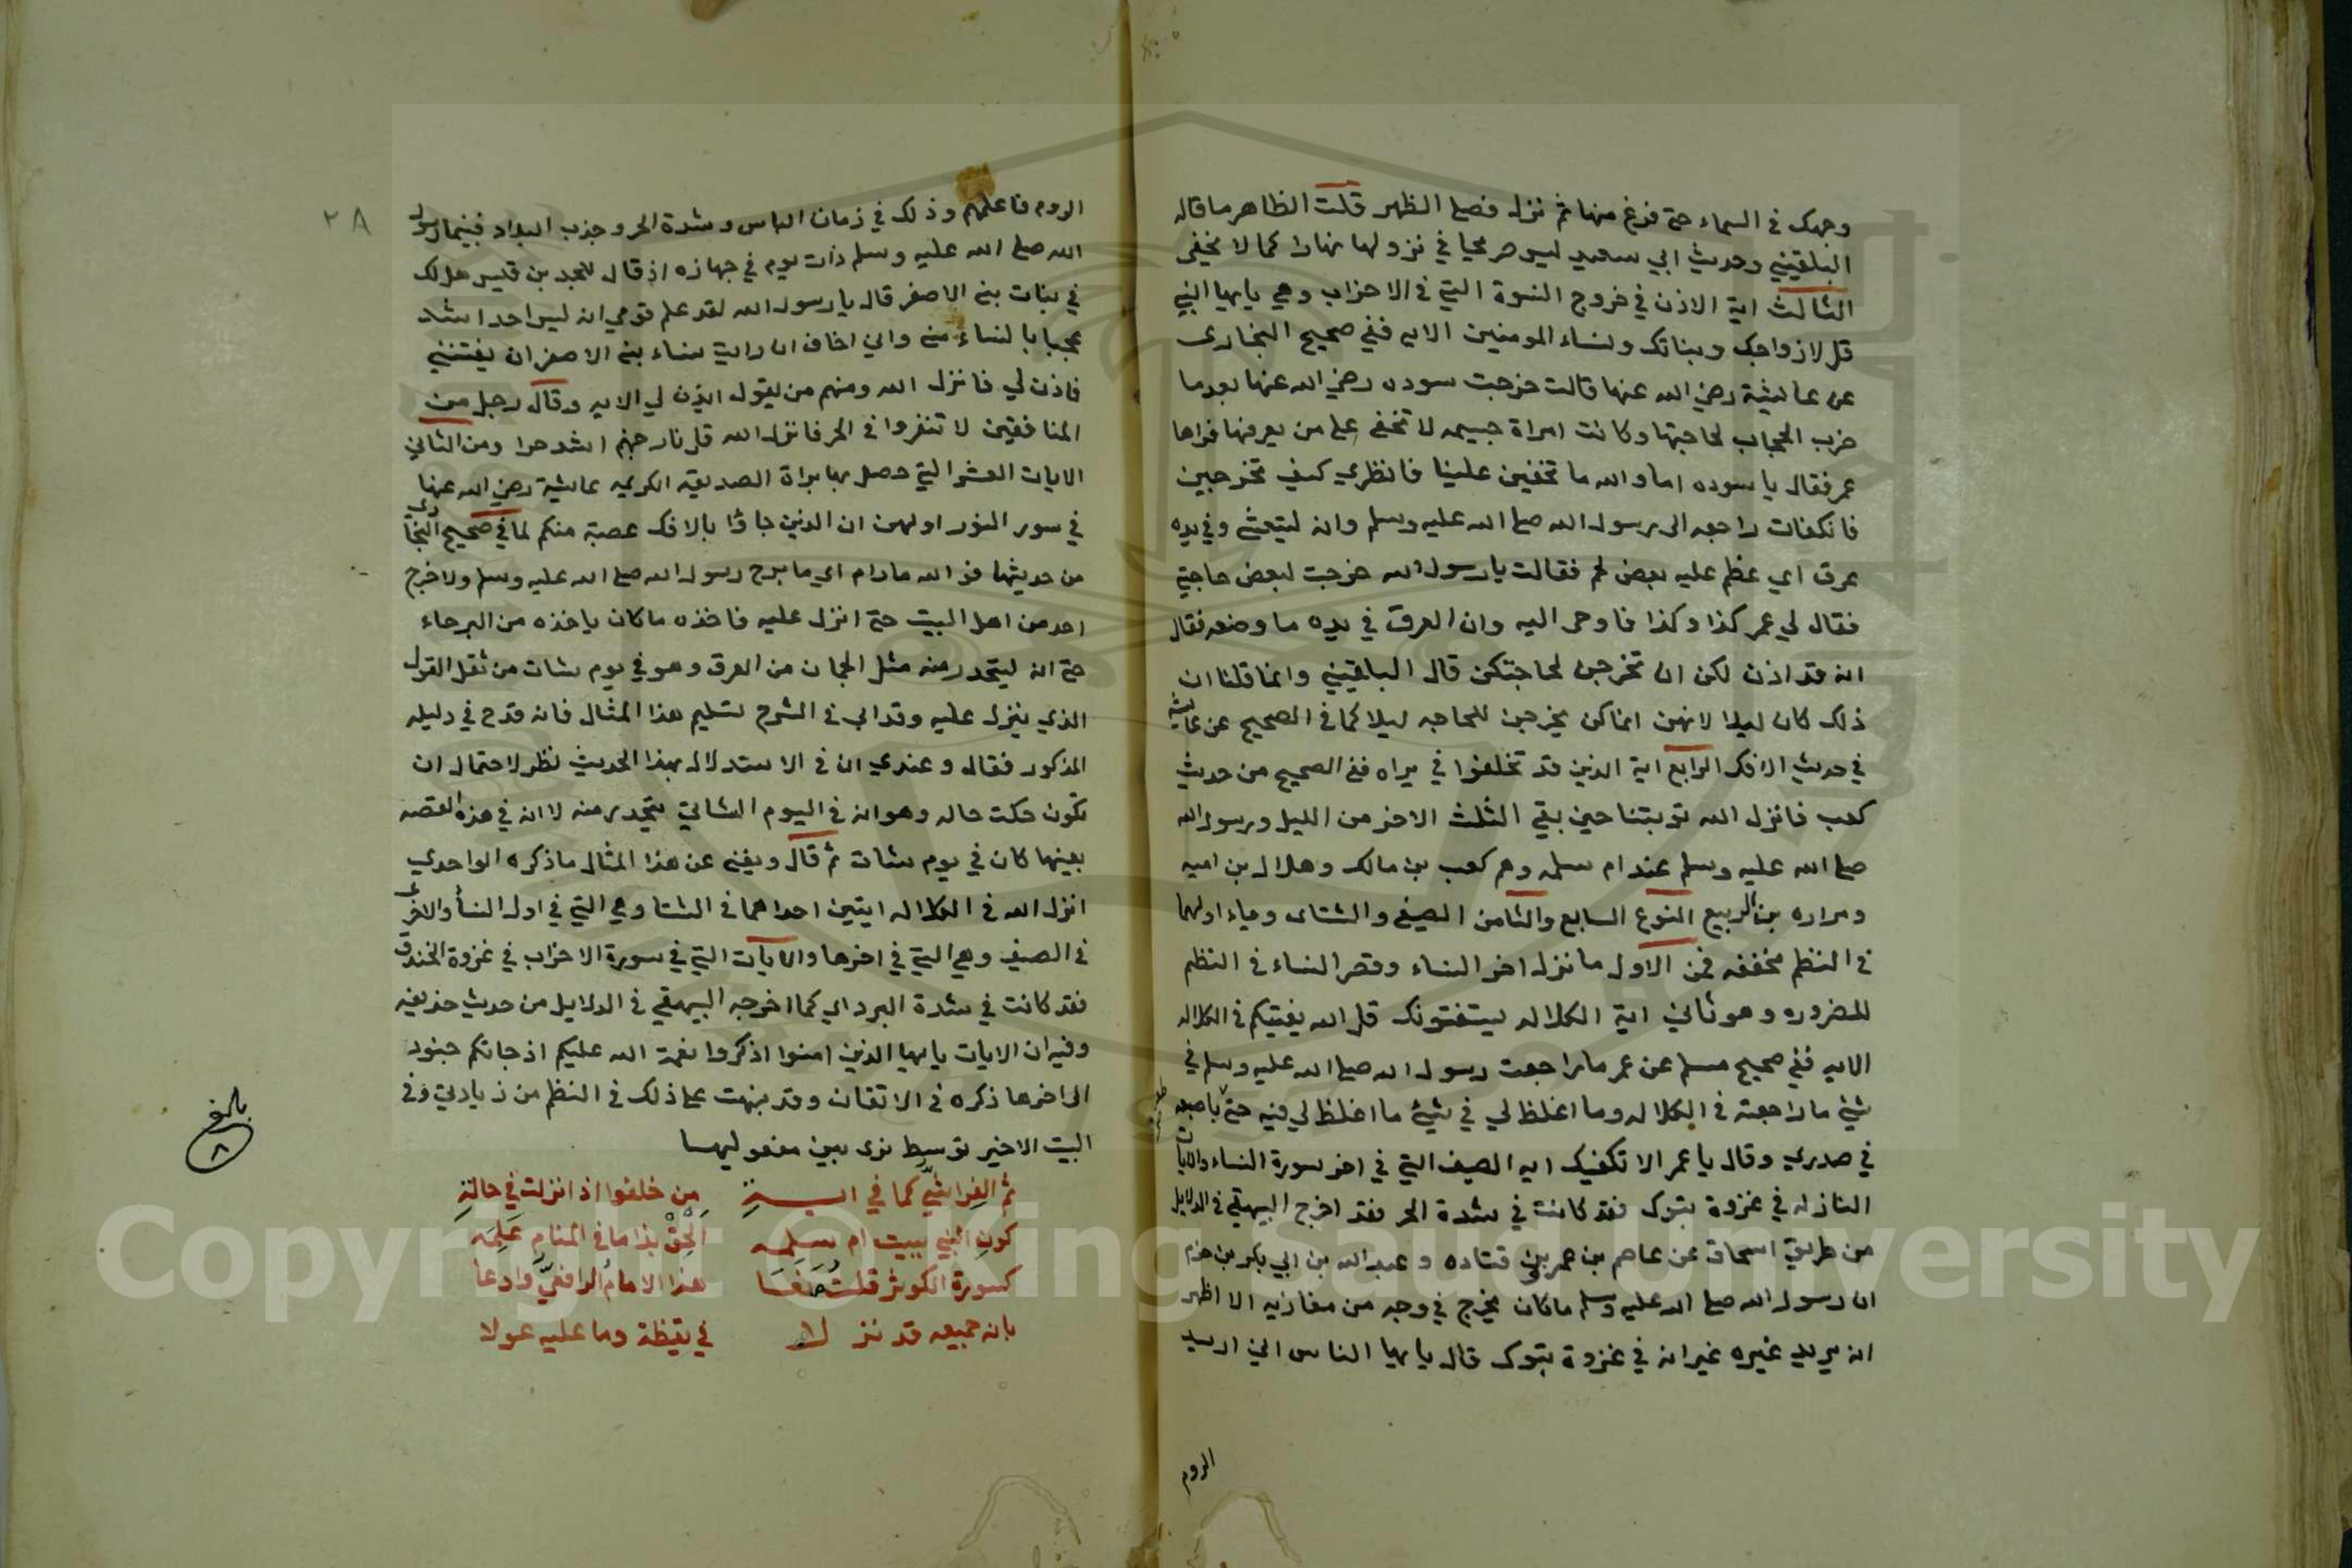 وجهك في السماء حتى فرغ منها ثم نزل فصلى الظهر قلت الظاهر ما قاله
البلقيني وحديث ابي سعيد ليس صريحا في نزولها نهارا كما لا يخفى
الثالث اية الاذن في خروج النسوة التي في الاحزاب وهي يايها النبي
قل لازواجك وبناتك ونساء المومنين الايه ففي صحيح البخارى
عن عايشة رضي الله عنها قالت خرجت سوده رضي الله عنها بعدما
ضرب الحجاب لحاجتها وكانت امراة جسيمه لا تخفى على من يعرفها فراها
عمر فقال يا سوده اما والله ما تخفين علينا فانظري كيف تخرجين
فانكفات راجعه الى رسول الله صلى الله عليه وسلم وانه ليتعشى وفي يده
عرق اي عظم عليه بعض لحم فقالت يا رسول الله خرجت لبعض حاجتي
فقال لي عمر كذا وكذا فاوحى اليه وان العرق في يده ما وضعه فقال
انه قد اذن لكن ان تخرجن لحاجتكن قال البلقيني وانما قلنا ان
ذلك كان ليلا لانهن انما كن يخرجن للحاجه ليلا كما في الصحيح عن عايشة
في حديث الافك الرابع اية الذين قد تخلفوا في براه ففي الصحيح من حديث
كعب فانزل الله توبتنا حين بقي الثلث الاخر من الليل ورسول الله
صلى الله عليه وسلم عند ام سلمه وهم كعب بن مالك وهلال بن اميه
ومراره بن الربيع النوع السابع والثامن الصيفي والشتاى وياء اولهما
في النظم مخففه فمن الاول ما نزل اخر النساء وقصر النساء في النظم
للضروره وهو ثاني اية الكلاله يستفتونك قل الله يفتيكم في الكلاله
الايه ففي صحيح مسلم عن عمر ما راجعت رسول الله صلى الله عليه وسلم في
شيئ ما راجعته في الكلاله وما اغلظ لي في شيئ ما اغلظ لي فيه حتى باصبعه
في صدري وقال يا عمر الا تكفيك ايه الصيف التي في اخر سورة النساء والايات
النازله في غزوة تبوك فقد كانت في شدة الحر فقد اخرج البيهقي في الدلايل
من طريق اسحاق عن عاصم بن عمر بن قتاده وعبد الله بن ابي بكر بن حزم
ان رسول الله صلى الله عليه وسلم ما كان يخرج في وجه من مغازيه الا اظهر
انه يريد غيره غير انه في غزوة تبوك قال يايها الناس اني اريد
الروم
٢٨
الروم فاعلمهم وذلك في زمان الباس وشدة الحر وجذب البلاد فبينما رسول
الله صلى الله عليه وسلم ذات يوم في جهازه اذ قال للجد بن قيس هل لك
في بنات بني الاصفر قال يا رسول الله لقد علم قومي انه ليس احد اشد
عجبا بالنساء مني واني اخاف ان رايت نساء بني الاصفر ان يفتنني
فاذن لي فانزل الله ومنهم من يقول ايذن لي الايه وقال رجل من
المنافقين لا تنفروا في الحر فانزل الله قل نار جهنم اشد حرا ومن الثاني
الايات العشر التي حصل بها براة الصديقه الكريمه عايشة رضي الله عنها
في سور النور اولهن ان الذين جاؤا بالافك عصبة منكم لما في صحيح البخارى
من حديثها فو الله ما رام اي ما برح رسول الله صلى الله عليه وسلم ولا خرج
احد من اهل البيت حتى انزل عليه فاخذه ما كان ياخذه من البرحاء
حتى انه ليتحدر منه مثل الجمان من العرق وهو في يوم شات من ثقل القول
الذي ينزل عليه وقد ابى في الشرح تسليم هذا المثال فانه قدح في دليله
المذكور فقال وعندي ان في الاستدلال بهذا الحديث نظر لاحتمال ان
تكون حكت حاله وهو انه في اليوم الشاتي يتحدر منه لا ان في هذه القصه
بعينها كان في يوم شات ثم قال ويغني عن هذا المثال ما ذكره الواحدي
انزل الله في الكلاله ايتين احداهما في الشتا وهي التي في اول النسأ والاخرى
في الصيف وهي التي في اخرها والايات التي في سورة الاحزاب في غزوة الخندق
فقد كانت في شدة البرد اي كما اخرجه البيهقي في الدلايل من حديث حذيفه
وفيه ان الايات يايها الذين امنوا اذكروا نعمة الله عليكم اذ جاتكم جنود
الى اخرها ذكره في الاتقان وقد نبهت على ذلك في النظم من زيادتي وفي
البيت الاخير توسط نزى بين مفعوليها
ثم الفراشي كما في اية من خلفوا اذ انزلت في حالة
كون النبي ببيت ام سلمه الحق بذا ما في المنام علمه
كسورة الكوثر قلت ضعفا هذا الامام الرافعي وادعا
بانه جميعه قد نزلا في يقظة وما عليه عولا
بلغ
٨